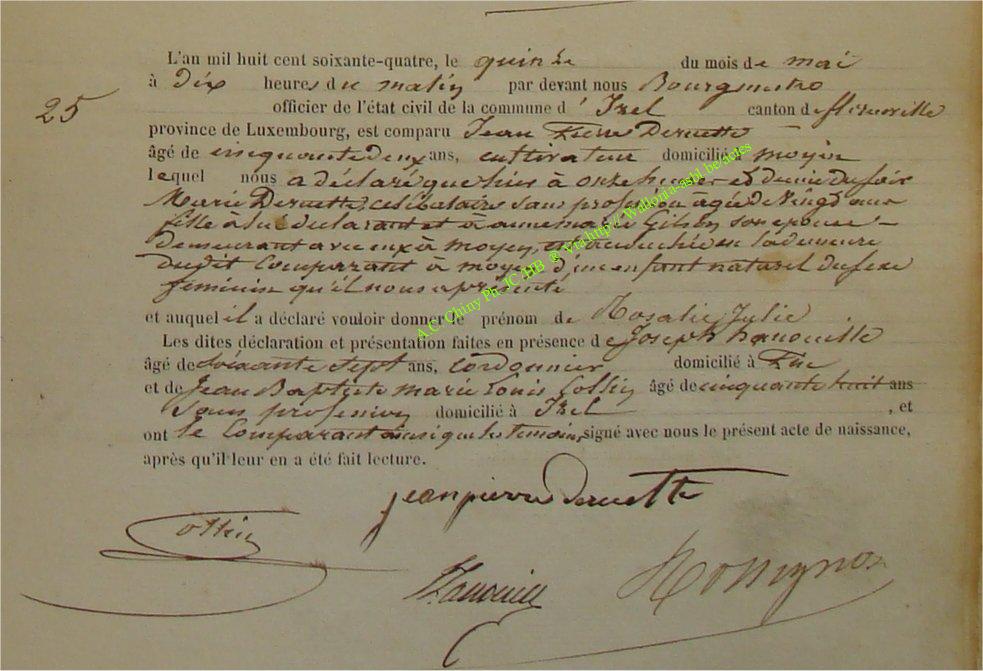 L'an mil huit cent soixante-quatre, le quinze du mois de mai
à Dix heures du matin par devant nous Bourgmestre
25
officier de l'état civil de la commune d' Izel canton de florenville
province de Luxembourg, est comparu Jean Pierre Deruette
âgé de cinquante deux ans, cultivateur domicilié à moyen
lequel nous a déclaré que hier à onze heures et demie du soir
Marie Deruette, célibataire sans profession âgée de vingt ans
fille à lui déclarant et à Gilson son épouse
Demeurant avec eux à moyen, est accouchée en la demeure
dudit Comparant à moyen d'un enfant naturel du sexe
féminin qu'il nous a présenté
et auquel il a déclaré vouloir donner le prénom de Rosalie Julie
Les dites déclaration et présentation faites en présence de Joseph hanouille
âgé de soixante sept ans, cordonnier domicilié à
et de Jean Baptiste marie Louis Collin âgé de cinquante huit ans
Sans profession domicilié à Izel , et
ont le Comparant ainsi que les temoins, signé avec nous le présent acte de naissance,
après qu'il leur en a été fait lecture.
jean pierre deruette
Collin
hanouille
Rossignon
A.C. Chiny Ph. IC.HB @ via http:// Wallonia-asbl.be/actes